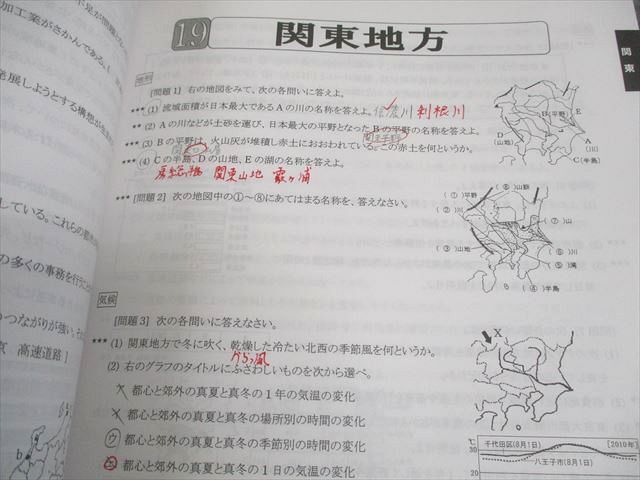 加工業がさかんである。
発展しようとする構想が
の多くの事務を行
のつながりが強い
高速道路]
19 関東地方
関東
地形
[問題1] 右の地図をみて、次の各問いに答えよ。
*** (1) 流域面積が日本最大であるAの川の名称を答えよ。信濃川 利根川
** (2) Aの川などが土砂を運び、日本最大の平野となったBの平野の名称を答えよ。
関東平野
*** (3) Bの平野は、火山灰が堆積し赤土におおわれている。この赤土を何というか。
関東ローム層
*** (4) Cの半島、Dの山地、Eの湖の名称を答えよ。
房総半島 関東山地 霞ヶ浦
*** [問題2] 次の地図中の①~⑧にあてはまる名称を、答えなさい。
気候
[問題3] 次の各問いに答えなさい。
*** (1) 関東地方で冬に吹く、乾燥した冷たい北西の季節風を何というか。
からっ風
(2) 右のグラフのタイトルにふさわしいものを次から選べ。
都心と郊外の真夏と真冬の1年の気温の変化
都心と郊外の真夏と真冬の場所別の時間の変化
ウ 都心と郊外の真夏と真冬の季節別の時間の変化
エ 都心と郊外の真夏と真冬の1日の気温の変化
B(平野)
E
D
A
(川)
C(半島)
(①)平野
(⑧)山脈
(②)川
(⑦)山
(③)山地
(⑥)川
(⑤)湾
(④)半島
X
℃
千代田区(8月1日)
[2010年]
30
八王子市(8月1日)
20